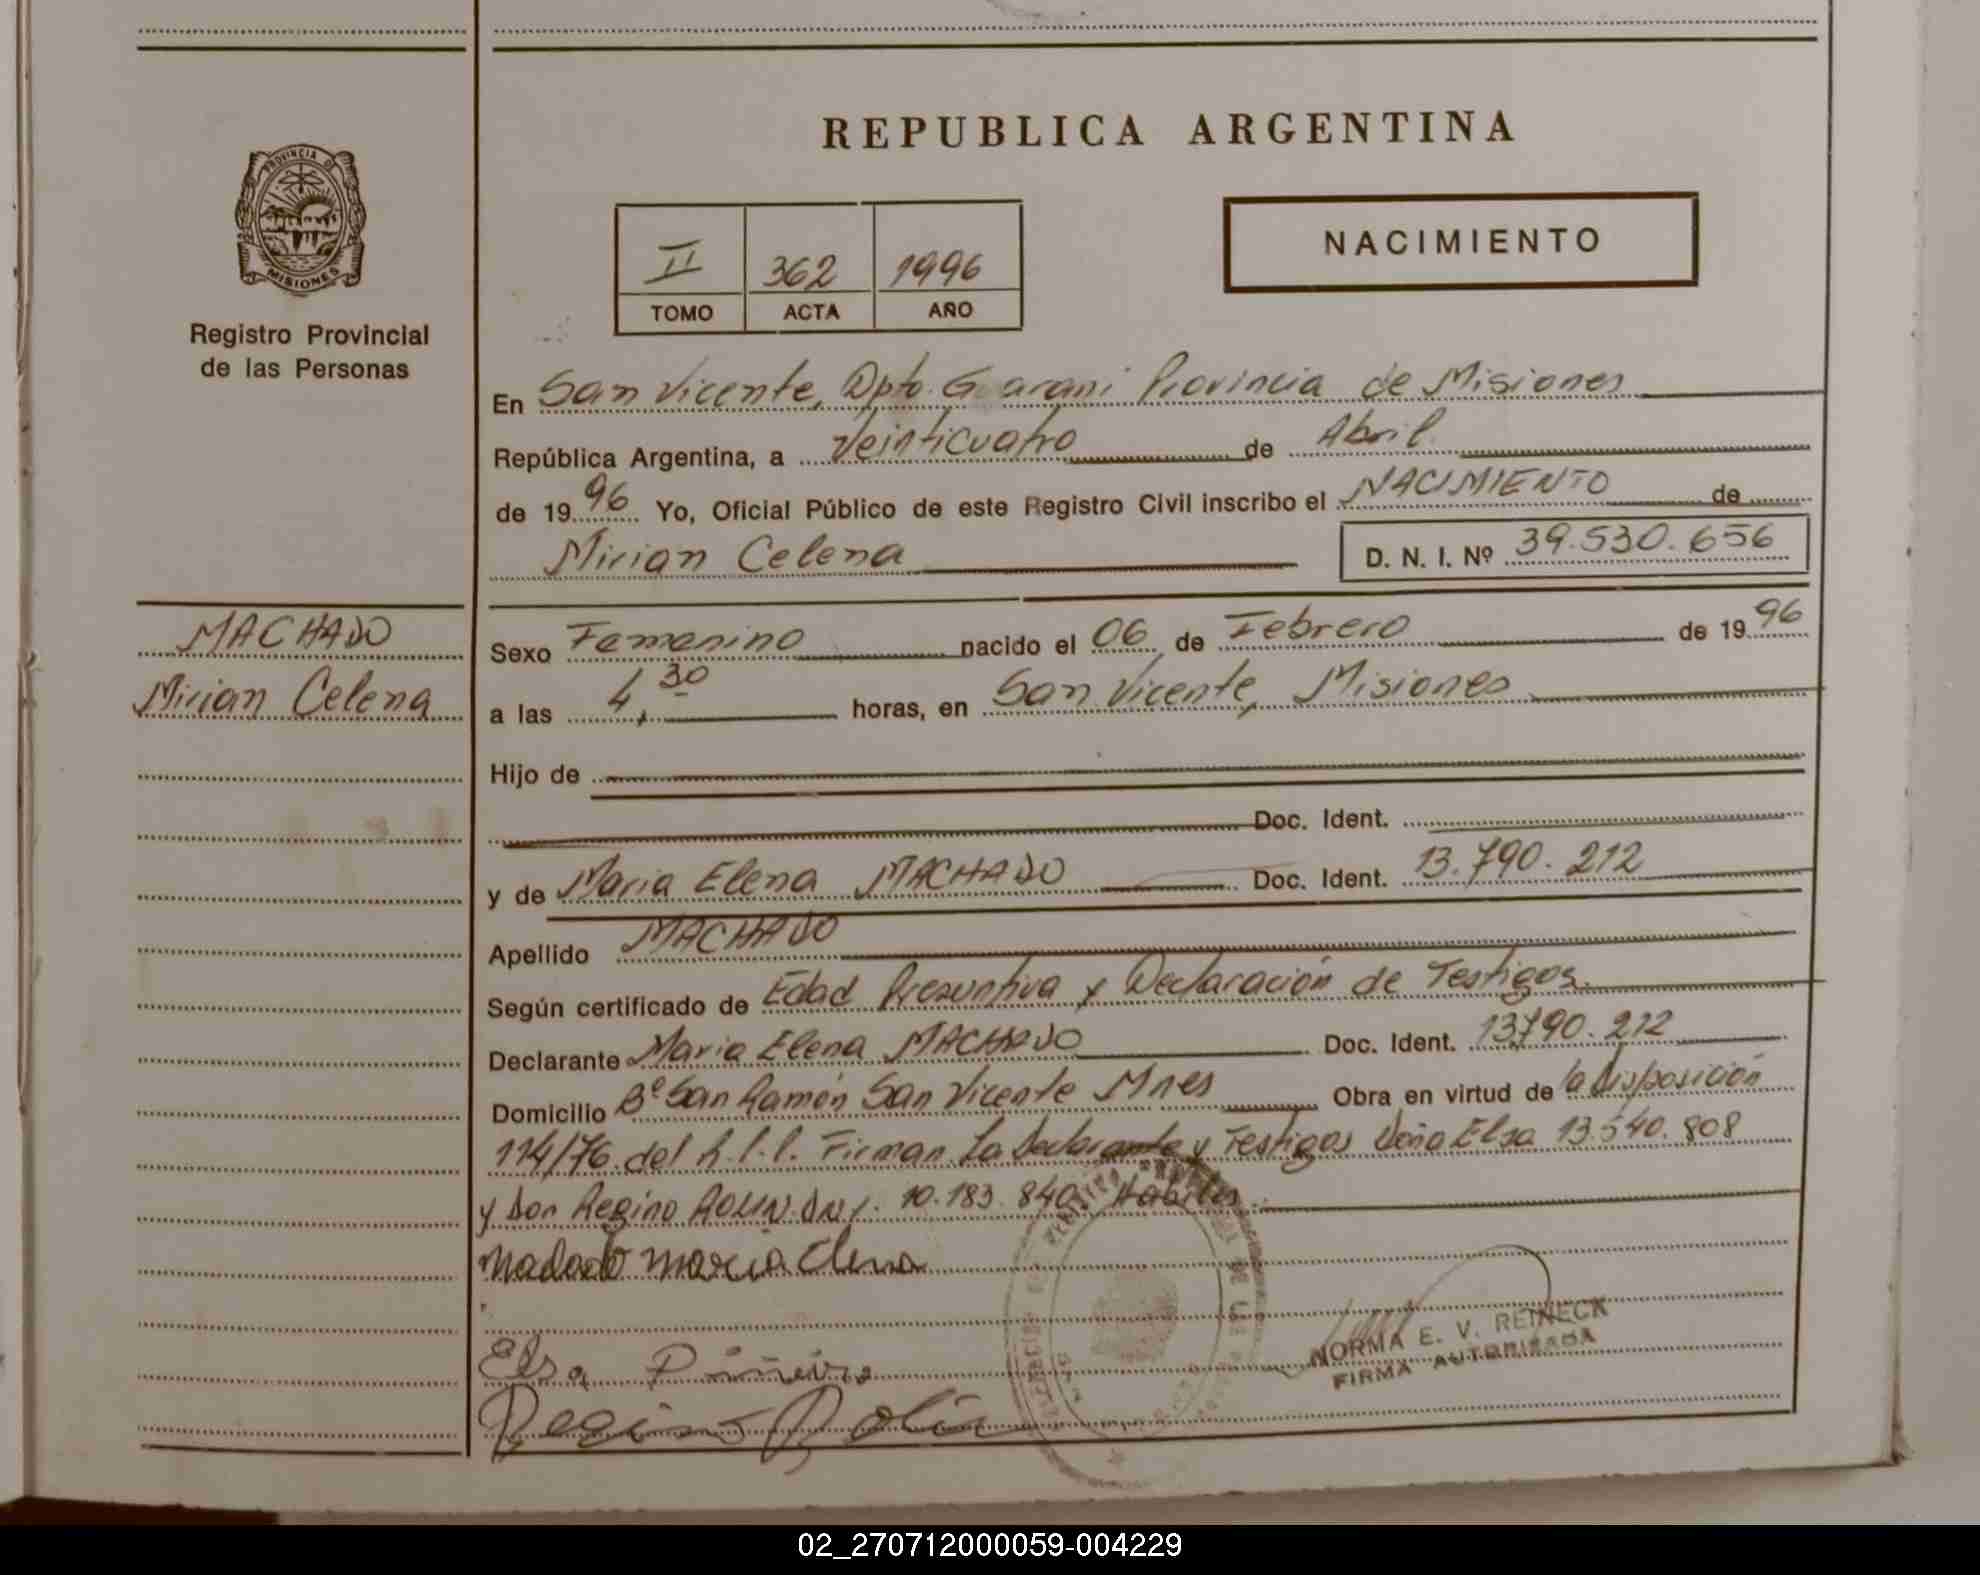 REPUBLICA ARGENTINA
PROVINCIA D
MISIONES
Registro Provincial
de las Personas
II 362 1996
TOMO ACTA AÑO
NACIMIENTO
En San Vicente, Dpto. Guarani Provincia de Misiones
República Argentina, a Veinticuatro de Abril
de 1996 Yo, Oficial Público de este Registro Civil inscribo el NACIMIENTO de
Mirian Celena
D. N. I. Nº 39.530.656
MACHADO
Mirian Celena
Sexo Femenino nacido el 06 de Febrero de 1996
a las 4,30 horas, en San Vicente, Misiones
Hijo de
Doc. Ident.
y de Maria Elena MACHADO Doc. Ident. 13.790.212
Apellido MACHADO
Según certificado de Edad Presuntiva y Declaración de Testigos.
Declarante Maria Elena MACHADO Doc. Ident. 13.790.212
Domicilio Bº San Ramón San Vicente Mnes Obra en virtud de la disposición
114/76 del Firman La Declarante y Testigos Doña Elsa 13.540.808
y Don Regino ROLIN 10.183.840 Habiles.
Maria Elena
Elsa Piñeiro
Regino Rolin
NORMA E. V. REINECK
FIRMA AUTORIZADA
02_270712000059-004229